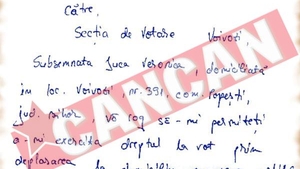 Către,
Secția de Votare Voivozi,
Subsemnata Luca Veronica, domiciliată
în loc. Voivozi, nr. 391, com. Popești,
jud. Bihor, vă rog să-mi permiteți
a-mi exercita dreptul la vot prin
deplasarea
CANCAN